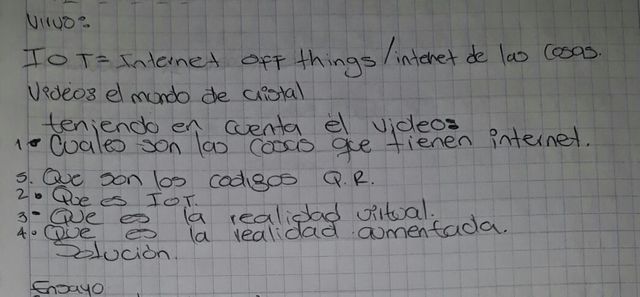 VIIVO:
IOT= Internet OFF things/intenet de las cosas.
Videos el mondo de cristal
teniendo en cuenta el videos
1• Cuales son las cosas que tienen internet.
5. Que son los codigos Q.R.
2. Que es IOT.
3- Que es la realidad virtual.
4. Que es la realidad aumentada.
Solución.
Ensayo